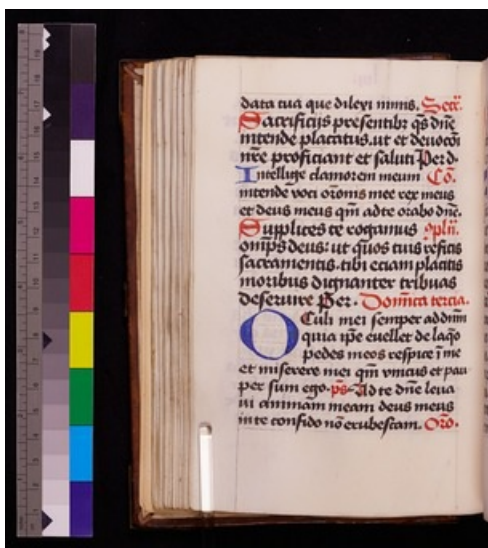 data tua que dilexi nimis. Secr̄.
Sacrificijs presentibꝫ q̄s dn̄e
intende placatus. ut et deuoc̄oi
nr̄e proficiant et saluti Per d.
Intellige clamorem meum Cō.
intende voci or̄onis mee rex meus
et deus meus qm̄ ad te orabo dn̄e.
Supplices te rogamus ꝯpln̄.
omp̄s deus: ut quos tuis reficis
sacramentis. tibi eciam placitis
moribus dignanter tribuas
deseruire Per. Domīca tercia.
OCuli mei semper ad dn̄m
quia ip̄e euellet de laq̄o
pedes meos respice ī me
et miserere mei qm̄ vnicus et pau
per sum ego. ps̄. Ad te dn̄e leua
ui animam meam deus meus
in te confido nō erubescam. Orō.